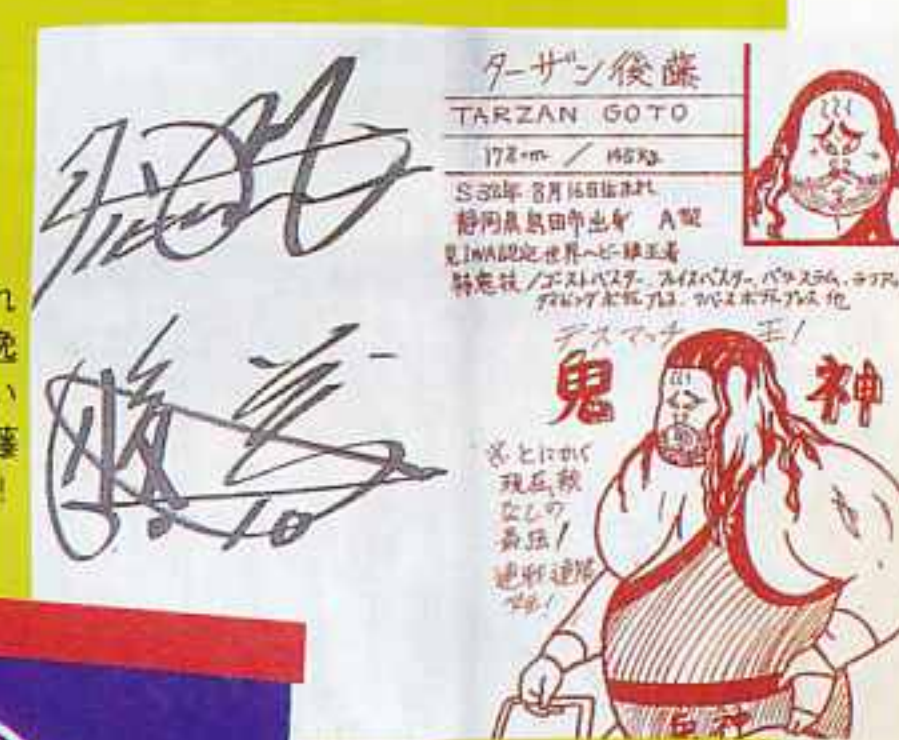 ターザン後藤
TARZAN GOTO
178cm /
S38年8月16日生まれ
静岡県島田市出身 A型
IWA認定世界ヘビー級王者
得意技/ゴーストバスター、フェイスバスター、パワースラム、ラリアット、
ダイビングボディプレス、リバースボディプレス他
デスマッチ 王!
鬼 神
※とにかく
現在、敵
なしの
最強!
連戦連勝
です!
鬼神
れ
兔
い
藤
!